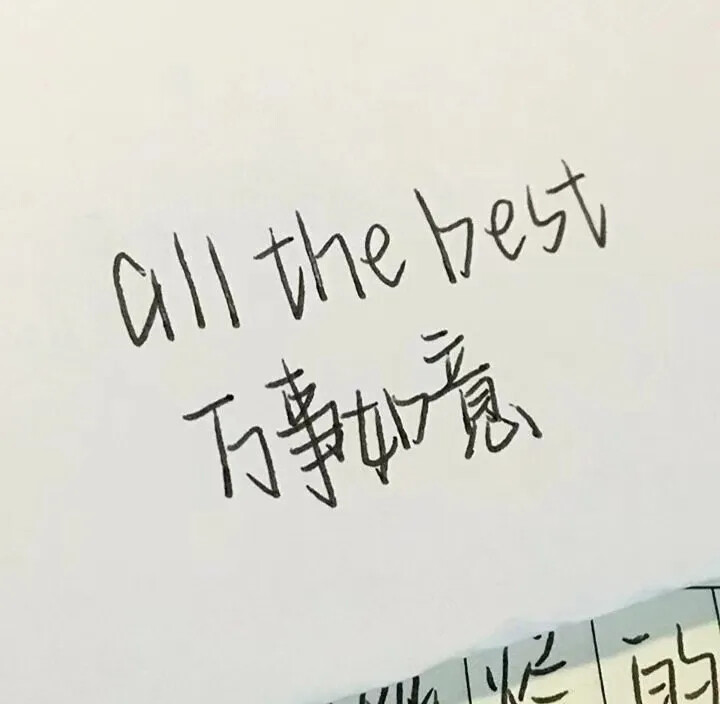 all the best
万事如意
烂的